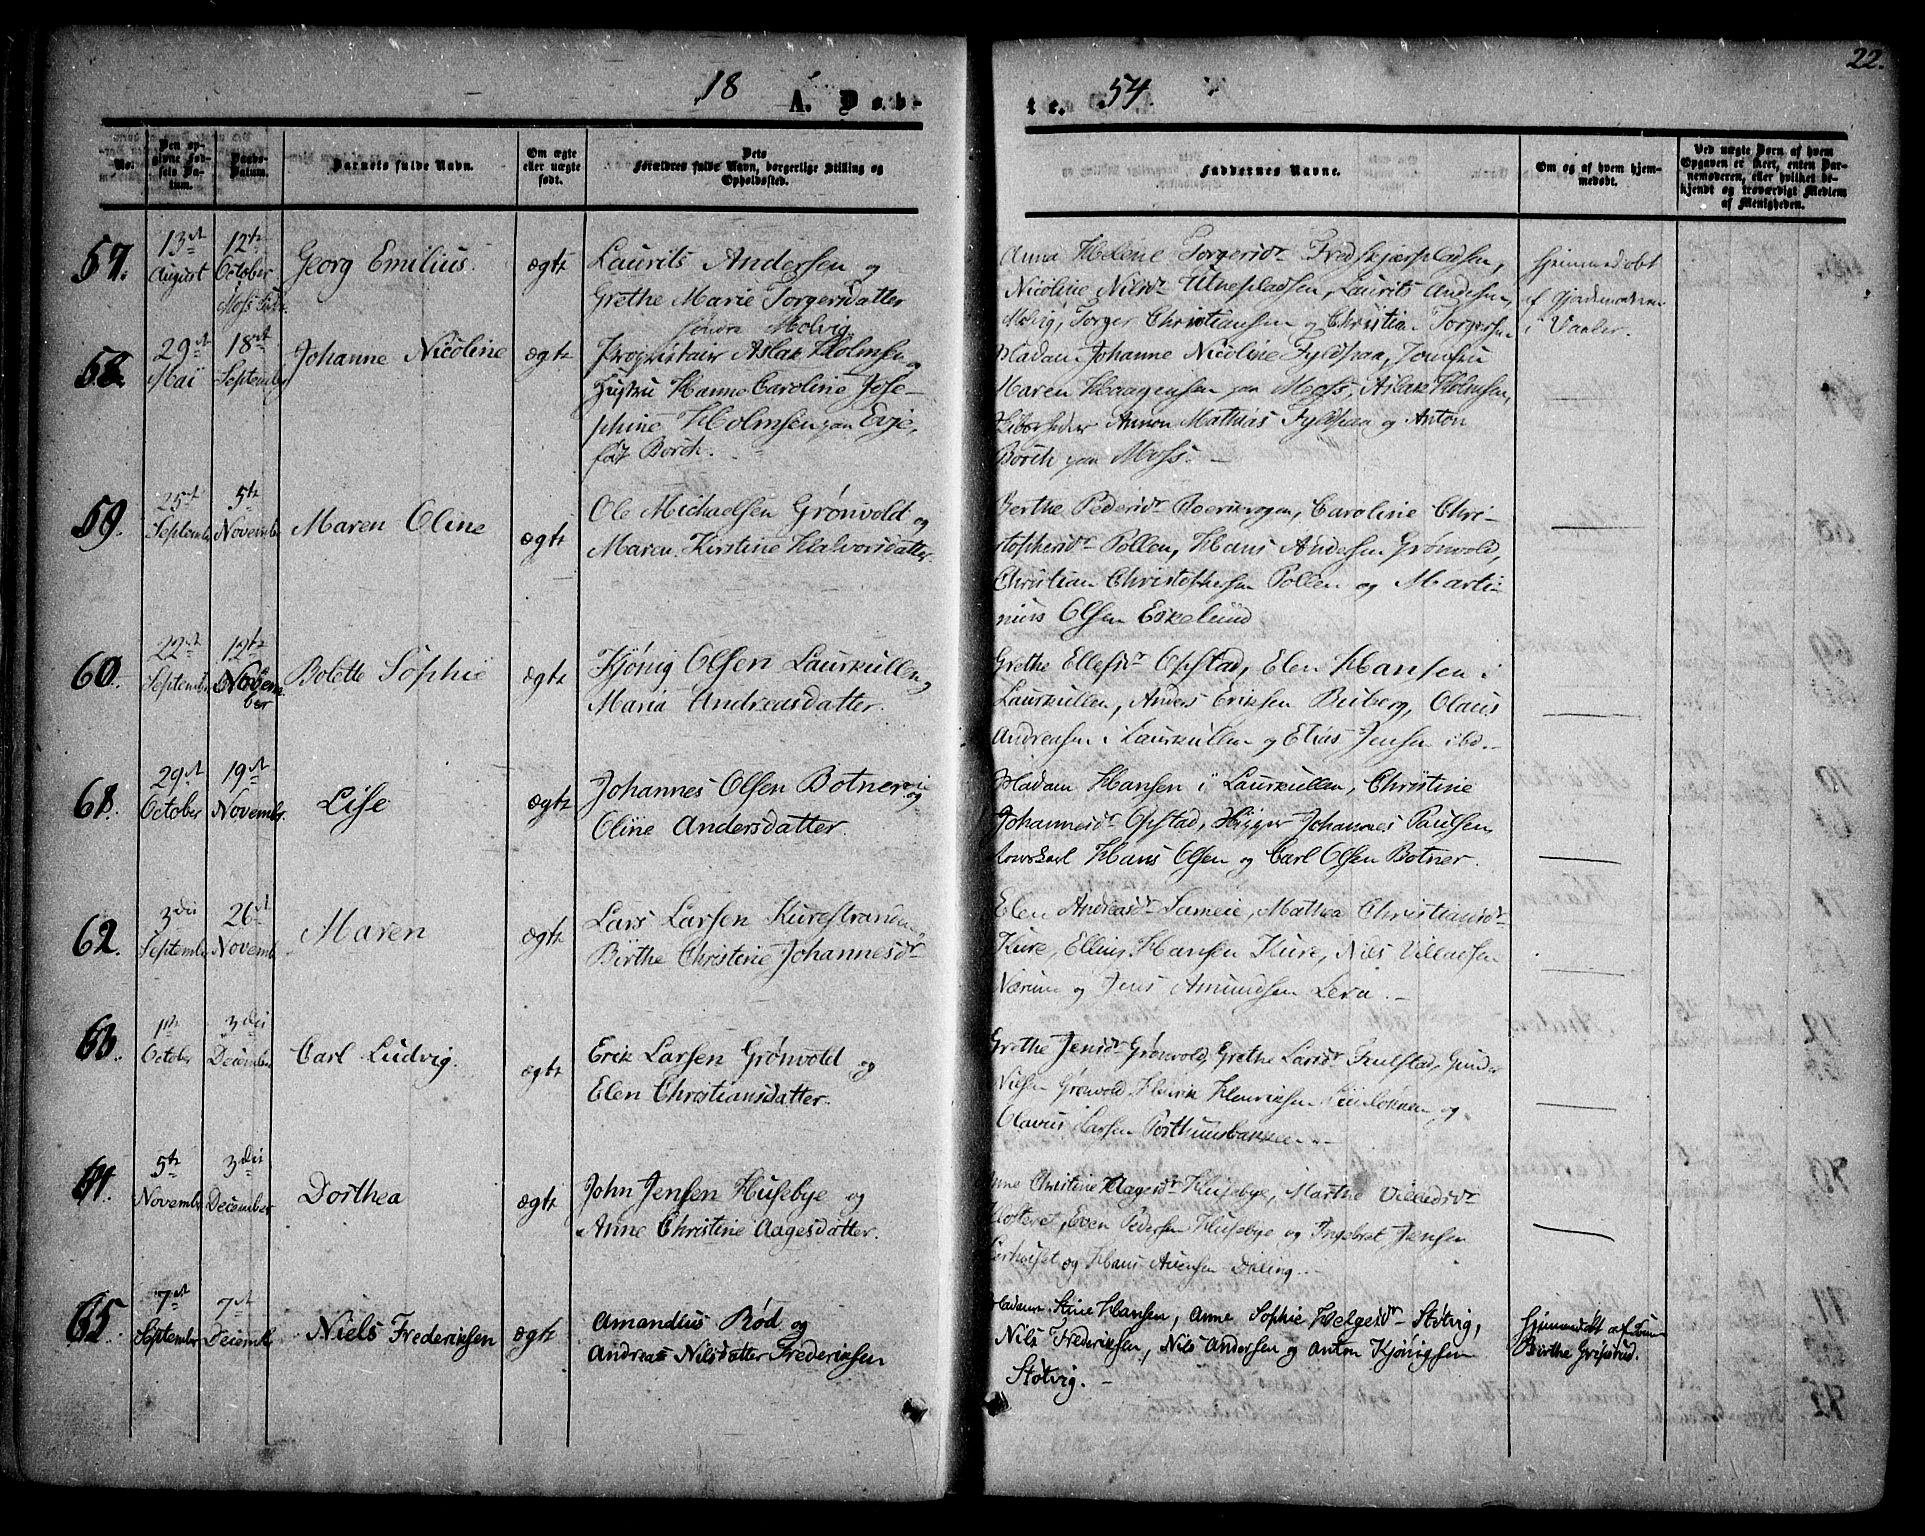 22.
18 A. Døb-
te. 54.
No.
Den opgivne Fødsels Datum.
Daabs-Datum.
Barnets fulde Navn.
Om ægte eller uægte født.
Dets Forældres fulde Navn, borgerlige Stilling og Opholdssted.
Faddernes Navne.
Om og af hvem hjemmedøbt.
Ved uægte Børn af hvem Opgaven er skeet, enten Barnemoderen, eller hvilket bekjendt og troværdigt Medlem af Menigheden.
57.
13de August
12te October
Moss
Georg Emilius.
ægte
Laurits Andersen og
Grethe Marie Torgersdatter
søndre Molvig
Anna Helene Torgersdr Fredskjærpladsen,
Nicoline Nilsdr Utnepladsen, Laurits Andersen
Molvig, Torger Christiansen og Christian Torgersen
Hjemmedøbt
af Gjordemoderen
i Vaaler.
58.
29de Mai
18de September
Johanne Nicoline
ægte
Proprietair Aslak Holmsen og
Hustru Hanne Caroline Jose-
phine Holmsen paa Evje,
født Borch.
Madam Johanne Nicoline Fyldpaa, Jomfru
Maren Haagensen paa Moss, Aslak Holmsen,
Mathias Fyldpaa og Anton
Borch paa Moss. —
59.
25de September
5te November
Maren Oline
ægte
Ole Michaelsen Grønvold og
Maren Kirstine Halvorsdatter.
Berthe Pedersdr, Caroline Chri-
stophersdr Pollen, Hans Andersen Grønvold,
Christian Christophersen Pollen og Marti-
nius Olsen Eskelund
60.
22de September
12te November
Bolette Sophie
ægte
Kjønig Olsen Laurkullen og
Maria Andreasdatter.
Grethe Ellefsdr Opstad, Elen Hansen i
Laurkullen, Anders Eriksen Buberg, Olaus
Andreasen i Laurkullen og Elias Jensen ibd. —
61.
29de October
19de November.
Lise
ægte
Johannes Olsen Botner og
Oline Andersdatter.
Madam Hansen i Laurkullen, Christine
Johannesdr Opstad, Johannes Paulsen,
Hans Olsen og Carl Olsen Botner.
62.
3die September
26de November
Maren
ægte
Lars Larsen Kurestranden og
Birthe Christine Johannesdr
Elen Andreasdr Sameie, Mathea Christiansdr
Kure, Ellius Hansen Kure, Nils Villadsen
Nærum og Jens Amundsen Lera. —
63.
1ste October
3die December
Carl Ludvig.
ægte
Erik Larsen Grønvold og
Elen Christiansdatter.
Grethe Jensdr Grønvold, Grethe Larsdr, Gunder
Nilsen Grønvold, Henrik Henriksen og
Olavus Larsen
64.
5te November
3die December
Dorthea
ægte
John Jensen Husebye og
Anne Christine Aagesdatter.
Anne Christine Aagesdr Husebye, Marthe Villadsdr
Klosteret, Even Pedersen Husebye og Ingebret Jensen
og Hans Dilling. —
65.
7de September
7de Decemb.
Niels Frederiksen
ægte
Amandius Rød og
Andrea Nilsdatter Frederiksen
Madam Stine Hansen, Anne Sophie Helgesdr Støtvig,
Nils Frederiksen, Nils Andersen og Anton Kjønigsen
Støtvig. —
Hjemmedøbt af
Birthe Grisrud.